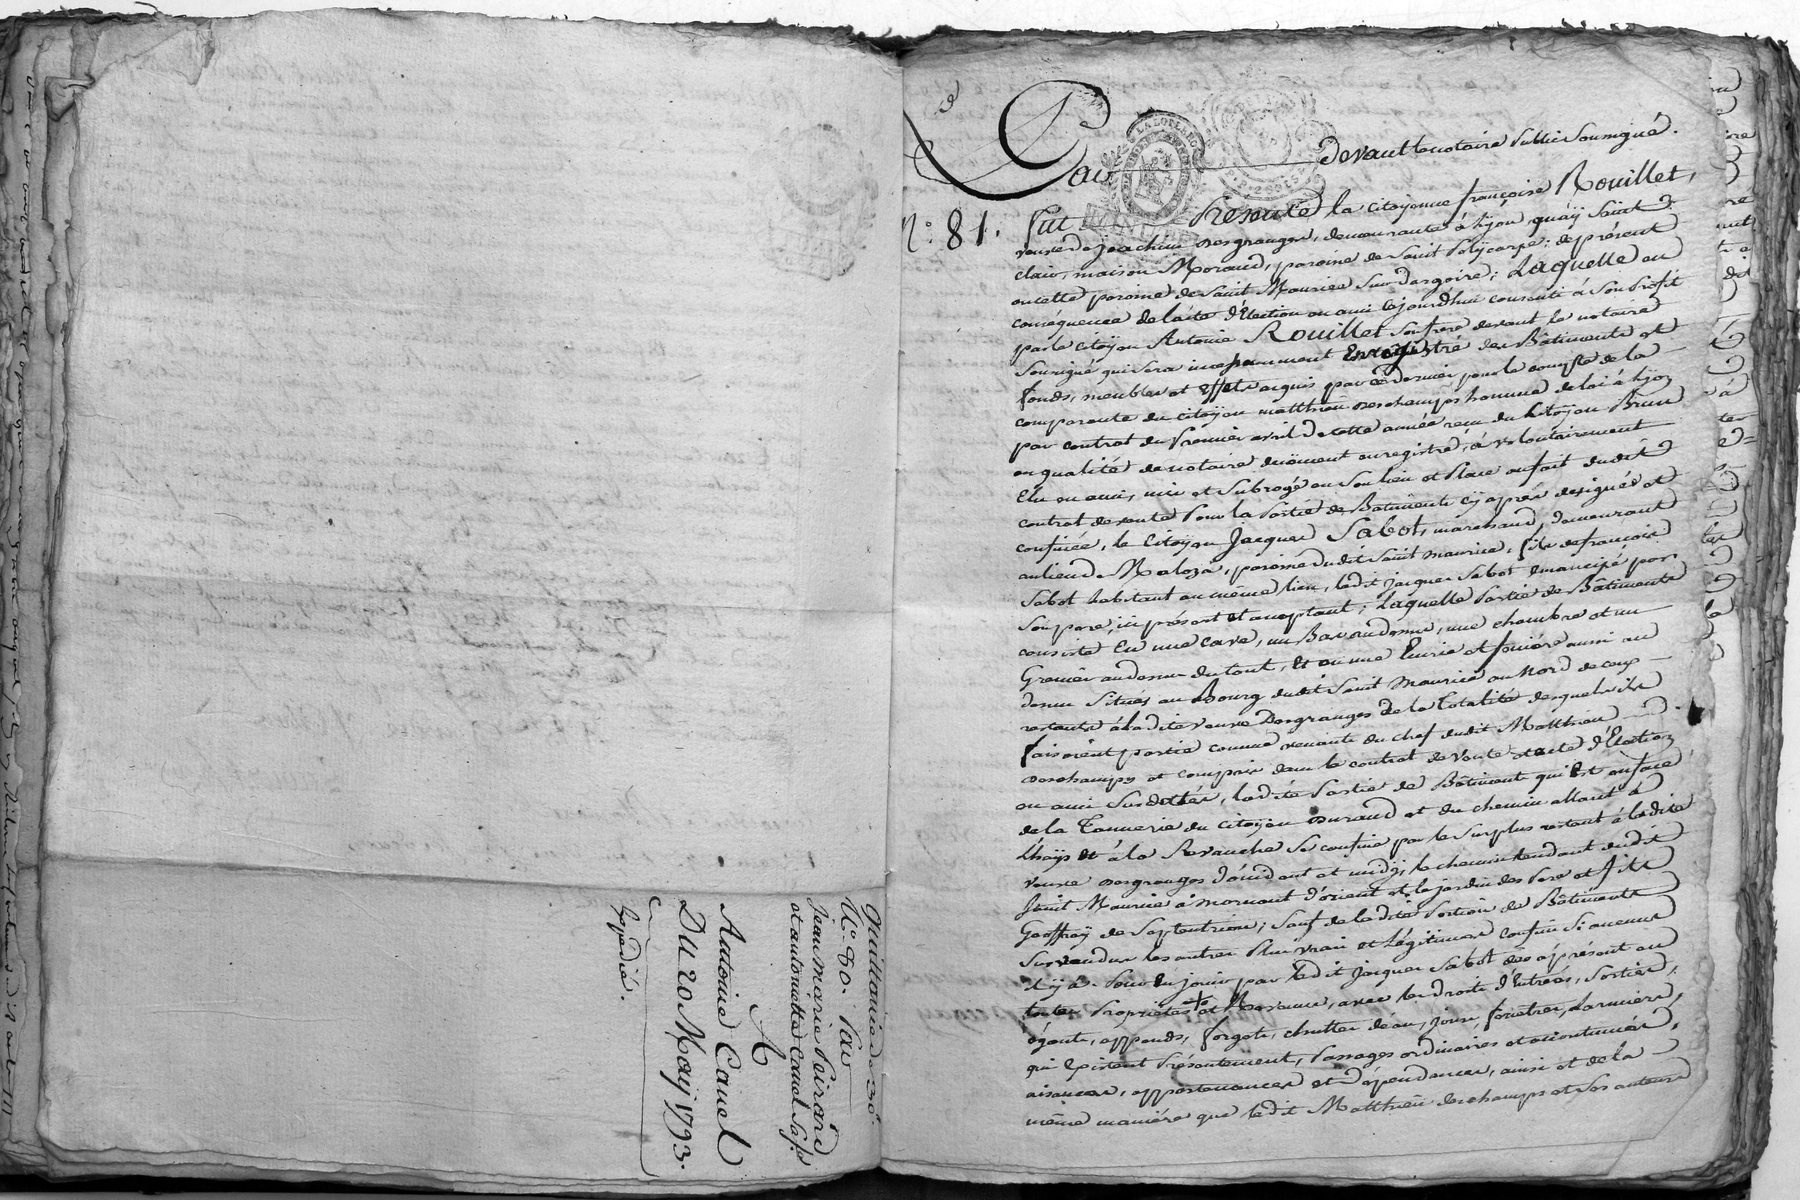 Quittance de 30
N.° 80. Par
Jean marie Poirard
et antoinette Canel Sa fe
A
Antoine Canel
DU 20 May 1793.
Expedié.
N.° 81.
Par devant le notaire Public Soussigné.
Fut Présente la Citoyenne françoise Rouillet,
veuve de joachim Desgranges, demeurante à Lyon, quaÿ Saint
Clair, maison Morand, paroisse de Saint Polÿcarpe; de présent
en cette paroisse de Saint Maurice Sur Dargoire; Laquelle en
conséquence de l'acte d'Election en ami cejourdhui consenti à Son Profit
par le Citoÿen Antoine Rouillet Son frere devant le notaire
Soussigné qui Sera incessamment Enregistré des Bâtiments et
fonds, meubles et Effets acquis par ce dernier pour le compte de la
comparante du citoÿen matthieu Deschamps homme de loi à Lÿon
par contrat du Premier avril de cette année reçu du Citoÿen Brun
en qualité de notaire duëment enregistré, à volontairement
Elu en ami, mis et Subrogé en Son lieu et Place au fait dudit
contrat de vente Pour la Partie de Bâtiments cÿ après designée et
confinée, le Citoÿen Jacques Sabot, marchand, demeurant
au lieu de Maloza, paroisse dudit Saint maurice, fils de françois
Sabot habitant au même lieu, ledit jacques Sabot emancipé par
Son pere, ici présent et acceptant; Laquelle Partie de Bâtiments
consiste En une cave, un Bas au dessus, une chambre et un
Grenier au dessus du tout, Et en une Ecurie et feniére aussi au
dessus Situés au Bourg dudit Saint Maurice au Nord de ceux
restants à ladite veuve Desgranges de la Totalité desquels ils
faisoient partie comme venants du chef dudit Matthieu
Deschamps et compris dans le contrat de vente et acte d'Election
en ami Susdattés, ladite Partie de Bâtiments qui Est en face
de la Tannerie du Citoÿen Durand et du chemin allant à
Lhaÿs et à la Revanche Se confine par le Surplus restant à ladite
veuve Desgranges d'occident et midÿ, le chemin tendant dudit
Saint Maurice à Mornant d'orient et le jardin des Pere et fils
Geoffraÿ de Septentrion; Sauf de ladite Portion de Bâtiments
Survendus les autres Plus vrais et Légitimes confins Si aucuns
il ÿ a. Pour En jouir par ledit jacques Sabot dès àprésent en
toutes Proprietés + et Revenus, avec les droits d'Entrées, Sorties,
égouts, appends, forgets, chuttes d'eau, jours, fenêtres, Larmiers,
qui Existent Présentement, Passages ordinaires et accoutumés,
aisances, appartenances et dépendances, ainsi et de la
même maniére que ledit Matthieu deschamps et Ses auteurs